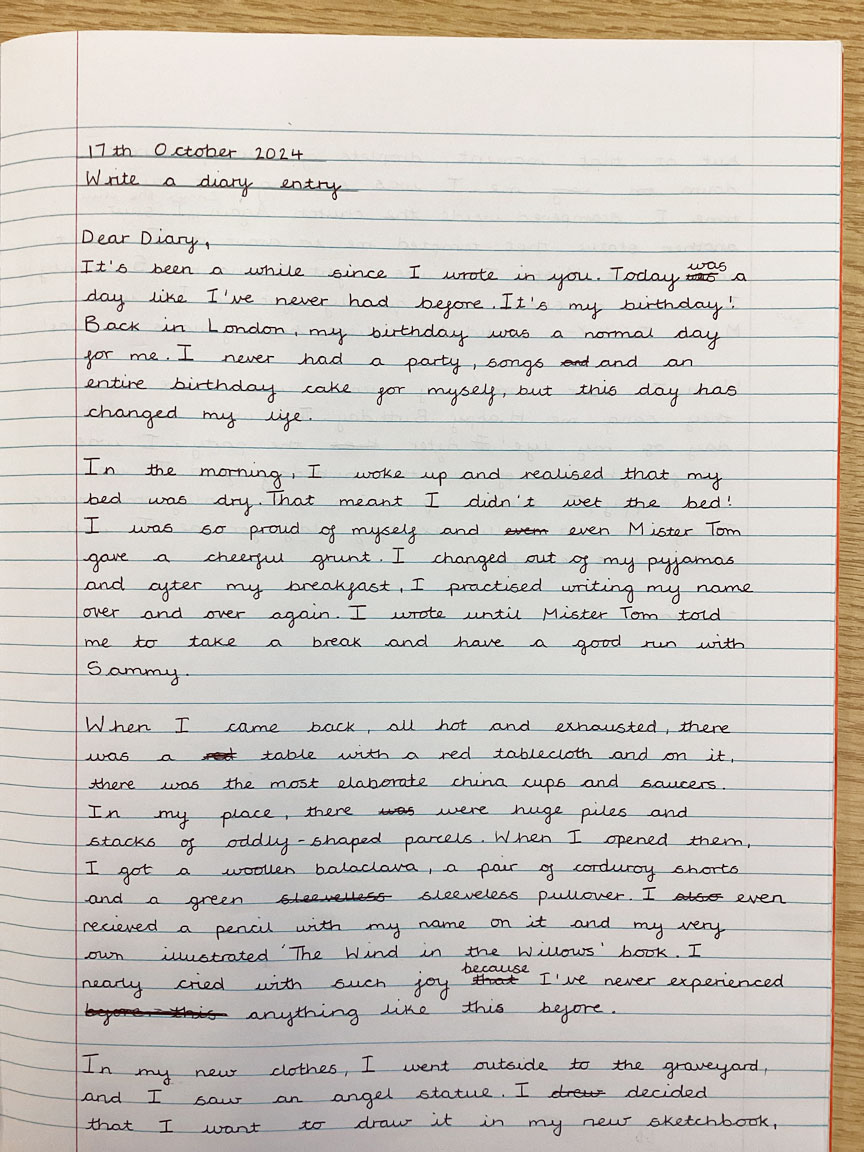 17th October 2024
Write a diary entry
Dear Diary,
was
It's been a while since I wrote in you. Today was a
day like I've never had before. It's my birthday!
Back in London, my birthday was a normal day
for me. I never had a party, songs and and an
entire birthday cake for myself, but this day has
changed my life.
In the morning, I woke up and realised that my
bed was dry. That meant I didn't wet the bed!
I was so proud of myself and even even Mister Tom
gave a cheerful grunt. I changed out of my pyjamas
and after my breakfast, I practised writing my name
over and over again. I wrote until Mister Tom told
me to take a break and have a good run with
Sammy.
When I came back, all hot and exhausted, there
was a red table with a red tablecloth and on it,
there was the most elaborate china cups and saucers.
In my place, there was were huge piles and
stacks of oddly-shaped parcels. When I opened them,
I got a woollen balaclava, a pair of corduroy shorts
and a green sleevelless sleeveless pullover. I also even
recieved a pencil with my name on it and my very
own illustrated 'The Wind in the Willows' book. I
because
nearly cried with such joy that I've never experienced
before this anything like this before.
In my new clothes, I went outside to the graveyard,
and I saw an angel statue. I drew decided
that I want to draw it in my new sketchbook,